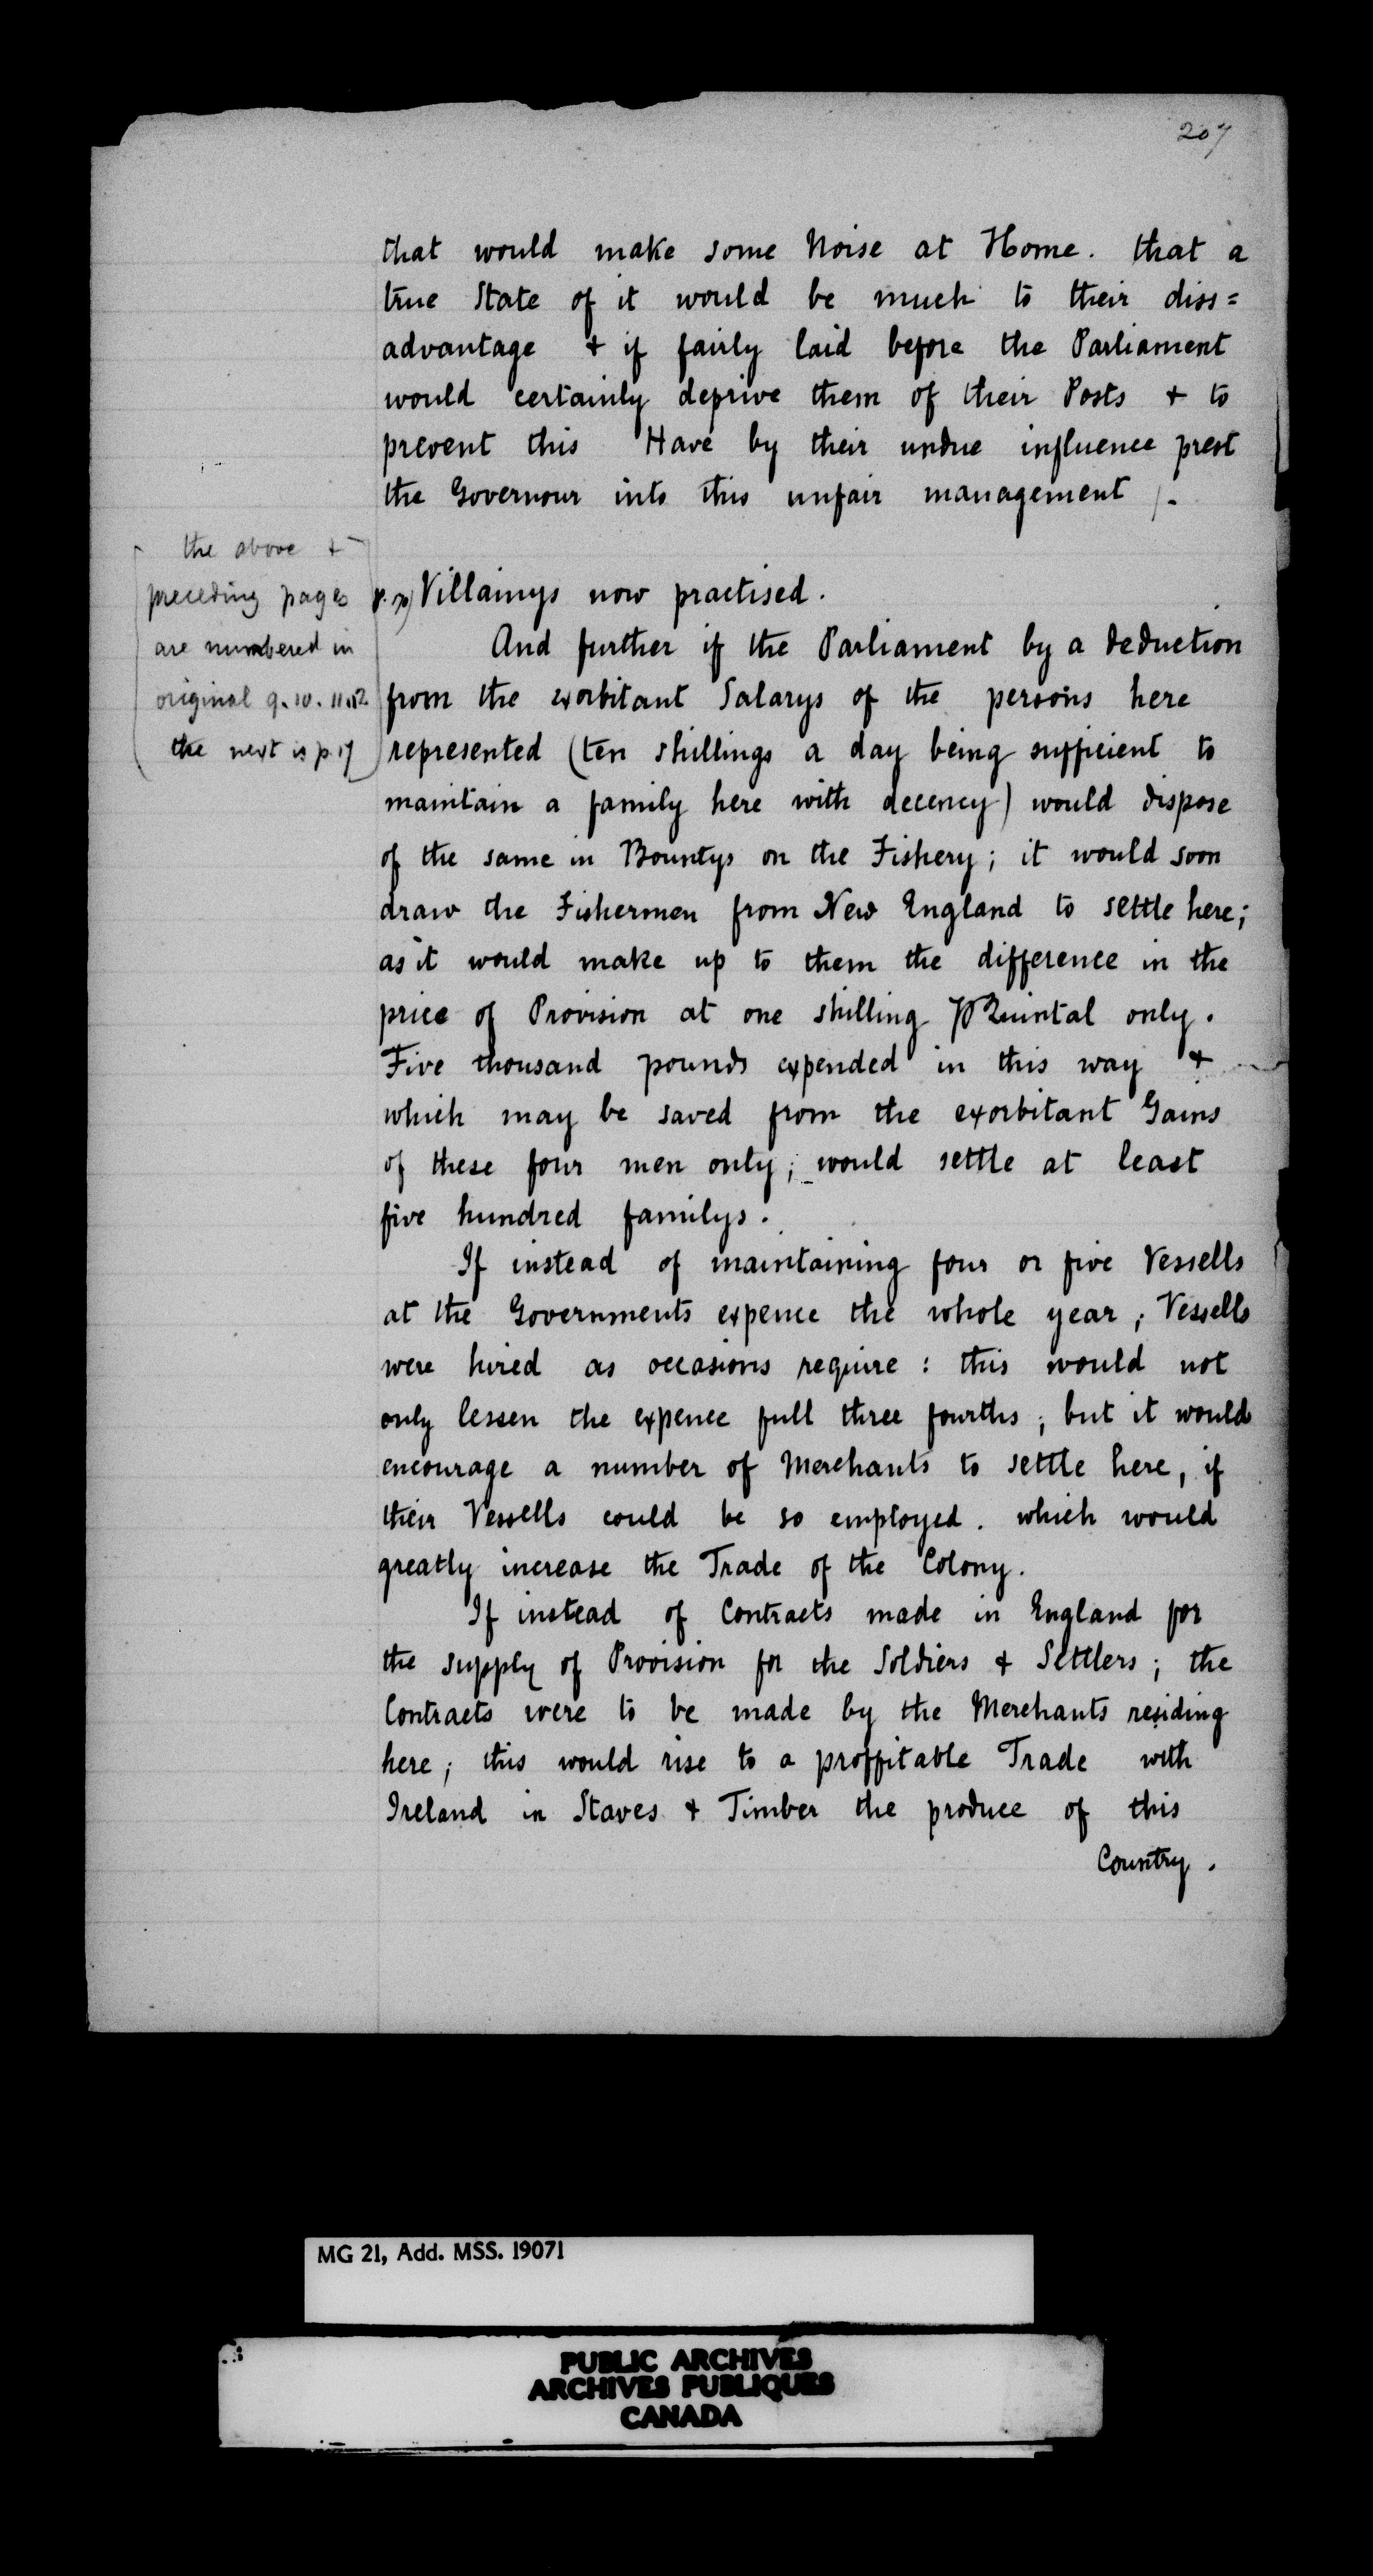 207
that would make some Noise at Home. that a
true State of it would be much to their diss=
advantage + if fairly laid before the Parliament
would certainly deprive them of their Posts + to
prevent this Have by their undue influence prest
the Governour into this unfair management /-
the above +
preceding pages
are numbered in
original 9. 10. 11.12
the next is p. 17
Villainys now practised.
And further if the Parliament by a deduction
from the exorbitant Salarys of the persons here
represented (ten shillings a day being sufficient to
maintain a family here with decency) would dispose
of the same in Bountys on the Fishery; it would soon
draw the Fishermen from New England to settle here;
as it would make up to them the difference in the
price of Provision at one shilling ⅌ Quintal only.
Five thousand pounds expended in this way +
which may be saved from the exorbitant Gains
of these four men only; would settle at least
five hundred familys.
If instead of maintaining four or five Vessells
at the Governments expence the whole year; Vessells
were hired as occasions require: this would not
only lessen the expence full three fourths; but it would
encourage a number of Merchants to settle here, if
their Vessells could be so employed. which would
greatly increase the Trade of the Colony.
If instead of Contracts made in England for
the supply of Provision for the Soldiers + Settlers; the
Contracts were to be made by the Merchants residing
here; this would rise to a proffitable Trade with
Ireland in Staves + Timber the produce of this
Country.
MG 21, Add. MSS. 19071
PUBLIC ARCHIVES
ARCHIVES PUBLIQUES
CANADA